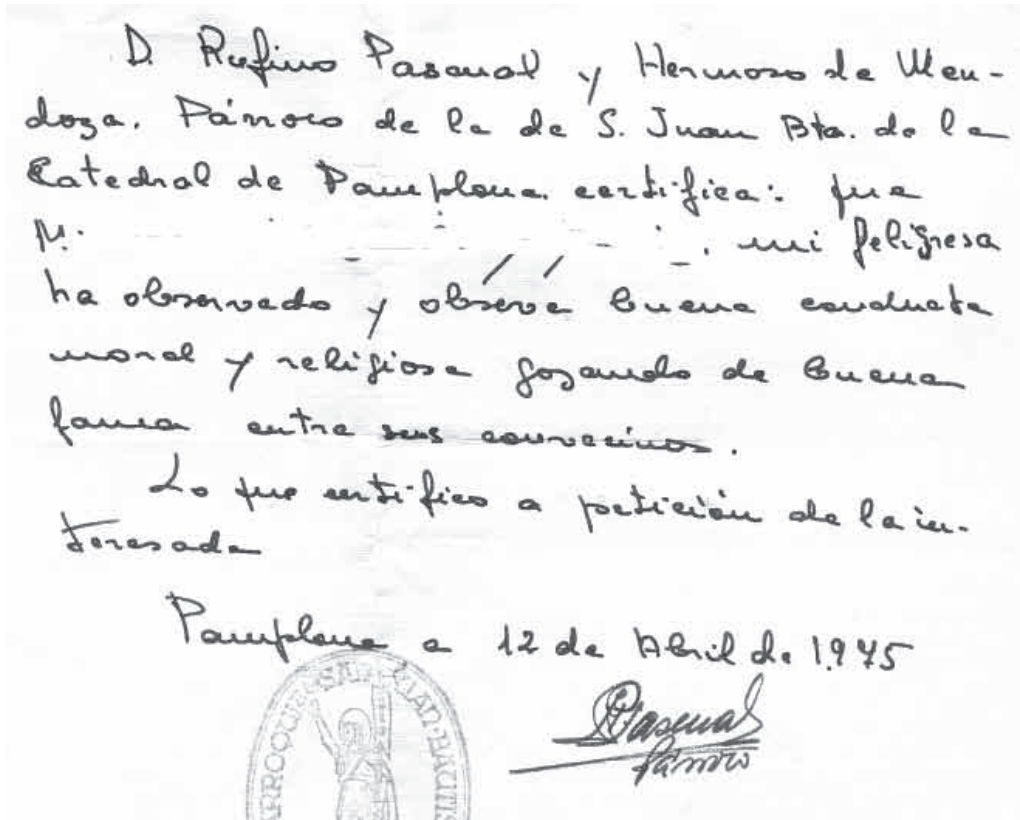 D. Rufino Pascual y Hermoso de Men-
doza. Párroco de la de S. Juan Bta. de la
Catedral de Pamplona certifica: que
M. , mi feligresa
ha observado y observa buena conducta
moral y religiosa gozando de buena
fama entre sus convecinos.
Lo que certifico a petición de la in-
teresada
Pamplona a 12 de Abril de 1.975
RPascual
Párroco
PARROQUIA SAN JUAN BAUTIS